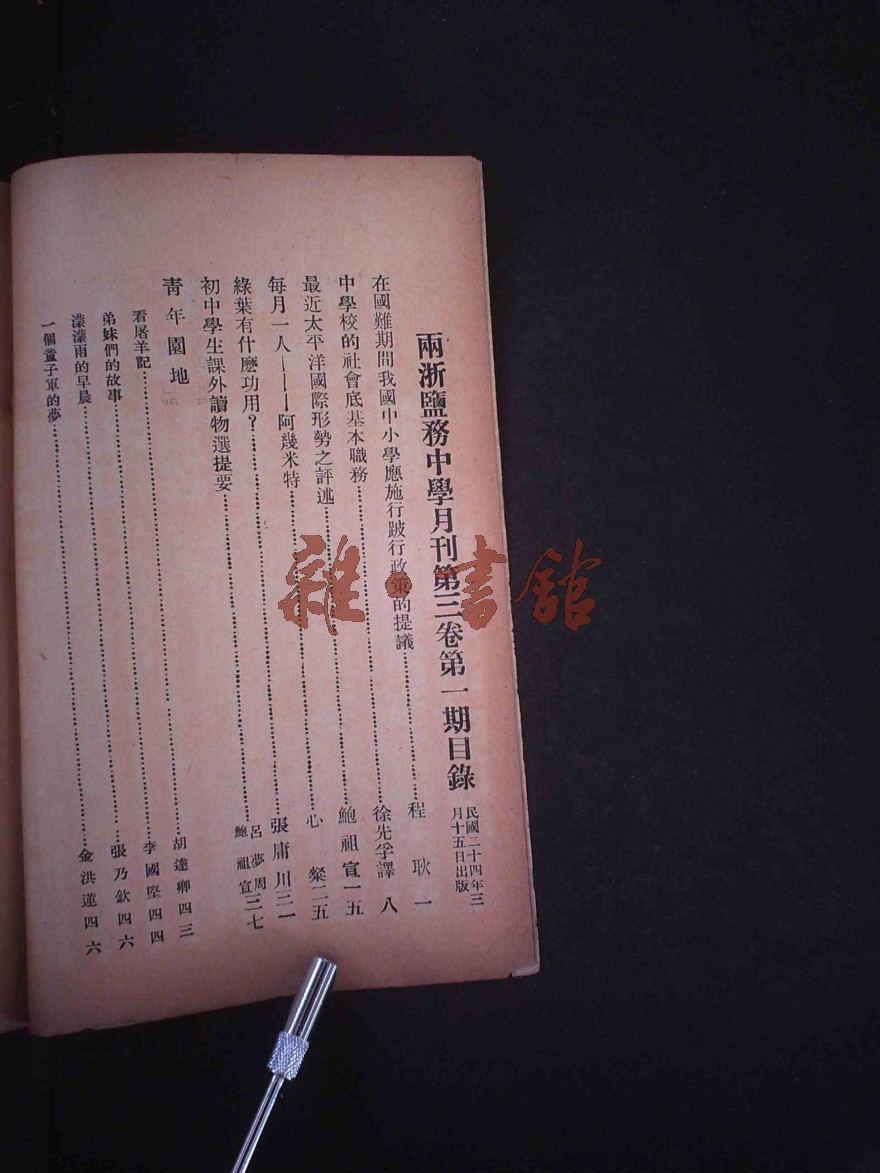 兩浙鹽務中學月刊第三卷第一期目錄
民國二十四年三
月十五日出版
在國難期間我國中小學應施行跛行政策的提議……程耿 一
中學校的社會底基本職務……徐先孚譯 八
最近太平洋國際形勢之評述……鮑祖宣 一五
每月一人———阿幾米特……心燦 二五
綠葉有什麽功用？……張庸川 三一
初中學生課外讀物選提要……呂夢周 鮑祖宣 三七
青年園地
看屠羊記……胡達卿 四三
弟妹們的故事……李國堅 四四
濛濛雨的早晨……張乃欽 四六
一個童子軍的夢……金洪蓮 四六
雜·書館